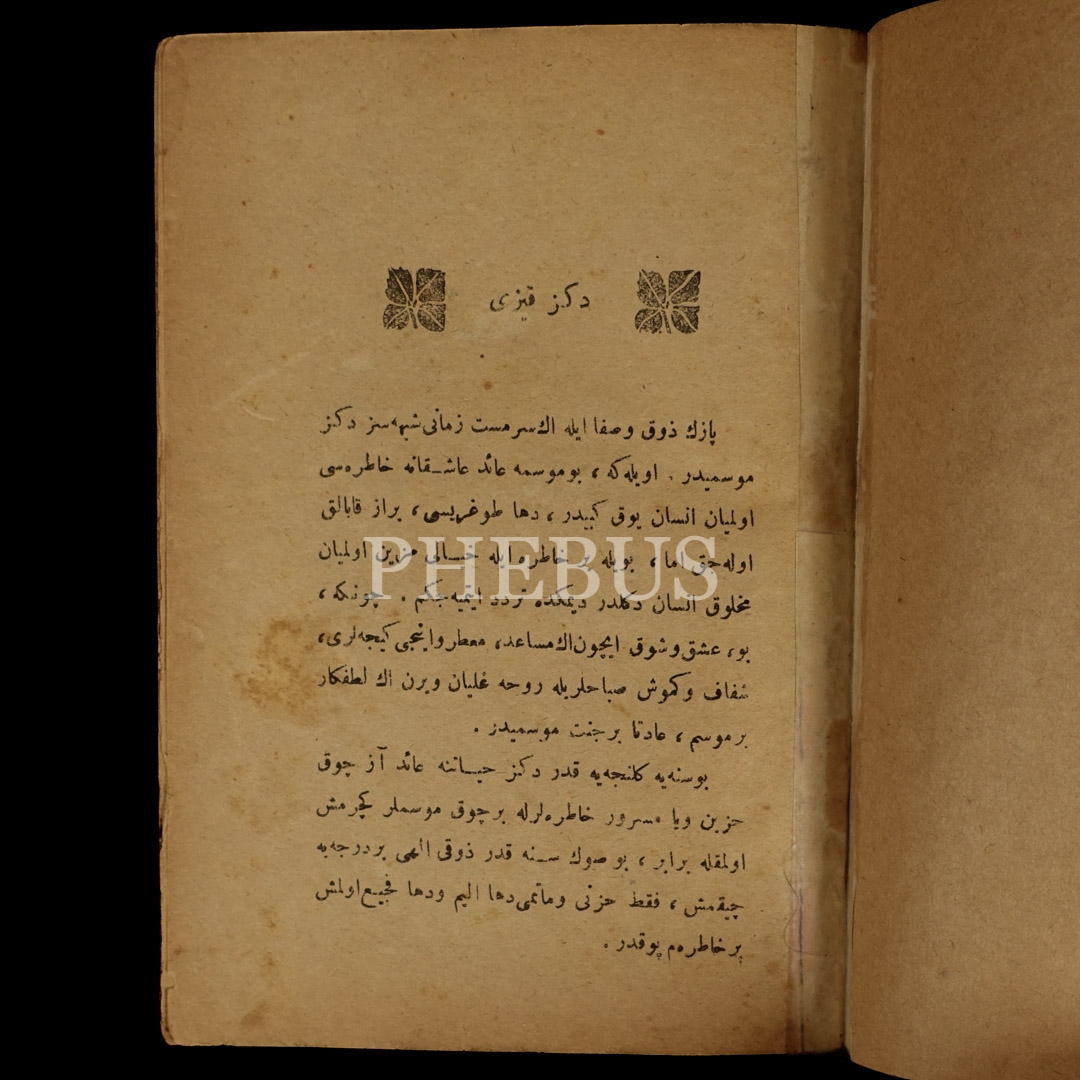 دكز قيزى
يازك ذوق وصفا ايله اك سرمست زمانى شبهه‌سز دكز
موسميدر . اويله‌كه ، بو موسمه عائد عاشقانه خاطره‌سى
اولميان انسان يوق كبيدر ، دها طوغريسى ، براز قابالق
اوله‌جق اما ، بويله بر خاطره ايله خيالى مزين اولميان
مخلوق انسان دكلدر ديمكده تردد ايتميه‌جكم . چونكه ،
بو ، عشق و شوق ايچون اك مساعد ، معطر و اينجى كيجه‌لرى ،
شفاف و كموش صباحلريله روحه غليان ويرن اك لطفكار
بر موسم ، عادتا بر جنت موسميدر .
بو سنه‌يه كلنجه‌يه قدر دكز حياتنه عائد آز چوق
حزين ويا مسرور خاطره‌لرله بر چوق موسملر كچرمش
اولمقله برابر ، بو صوك سنه قدر ذوقى الهى بر درجه‌يه
چيقمش ، فقط حزنى و ماتمى دها اليم ودها فجيع اولمش
بر خاطره‌م يوقدر .
PHEBUS